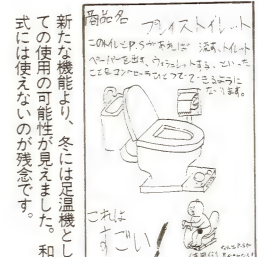 商品名
プレイストイレット
このトイレとP.Sがあれば 流す、トイレット
ペーパーを出す、ウォシュレットする、といった
ことをコントローラひとつでできるように
なります。
これは
すごい!
新たな機能より、冬には足温機とし
ての使用の可能性が見えました。和
式には使えないのが残念です。